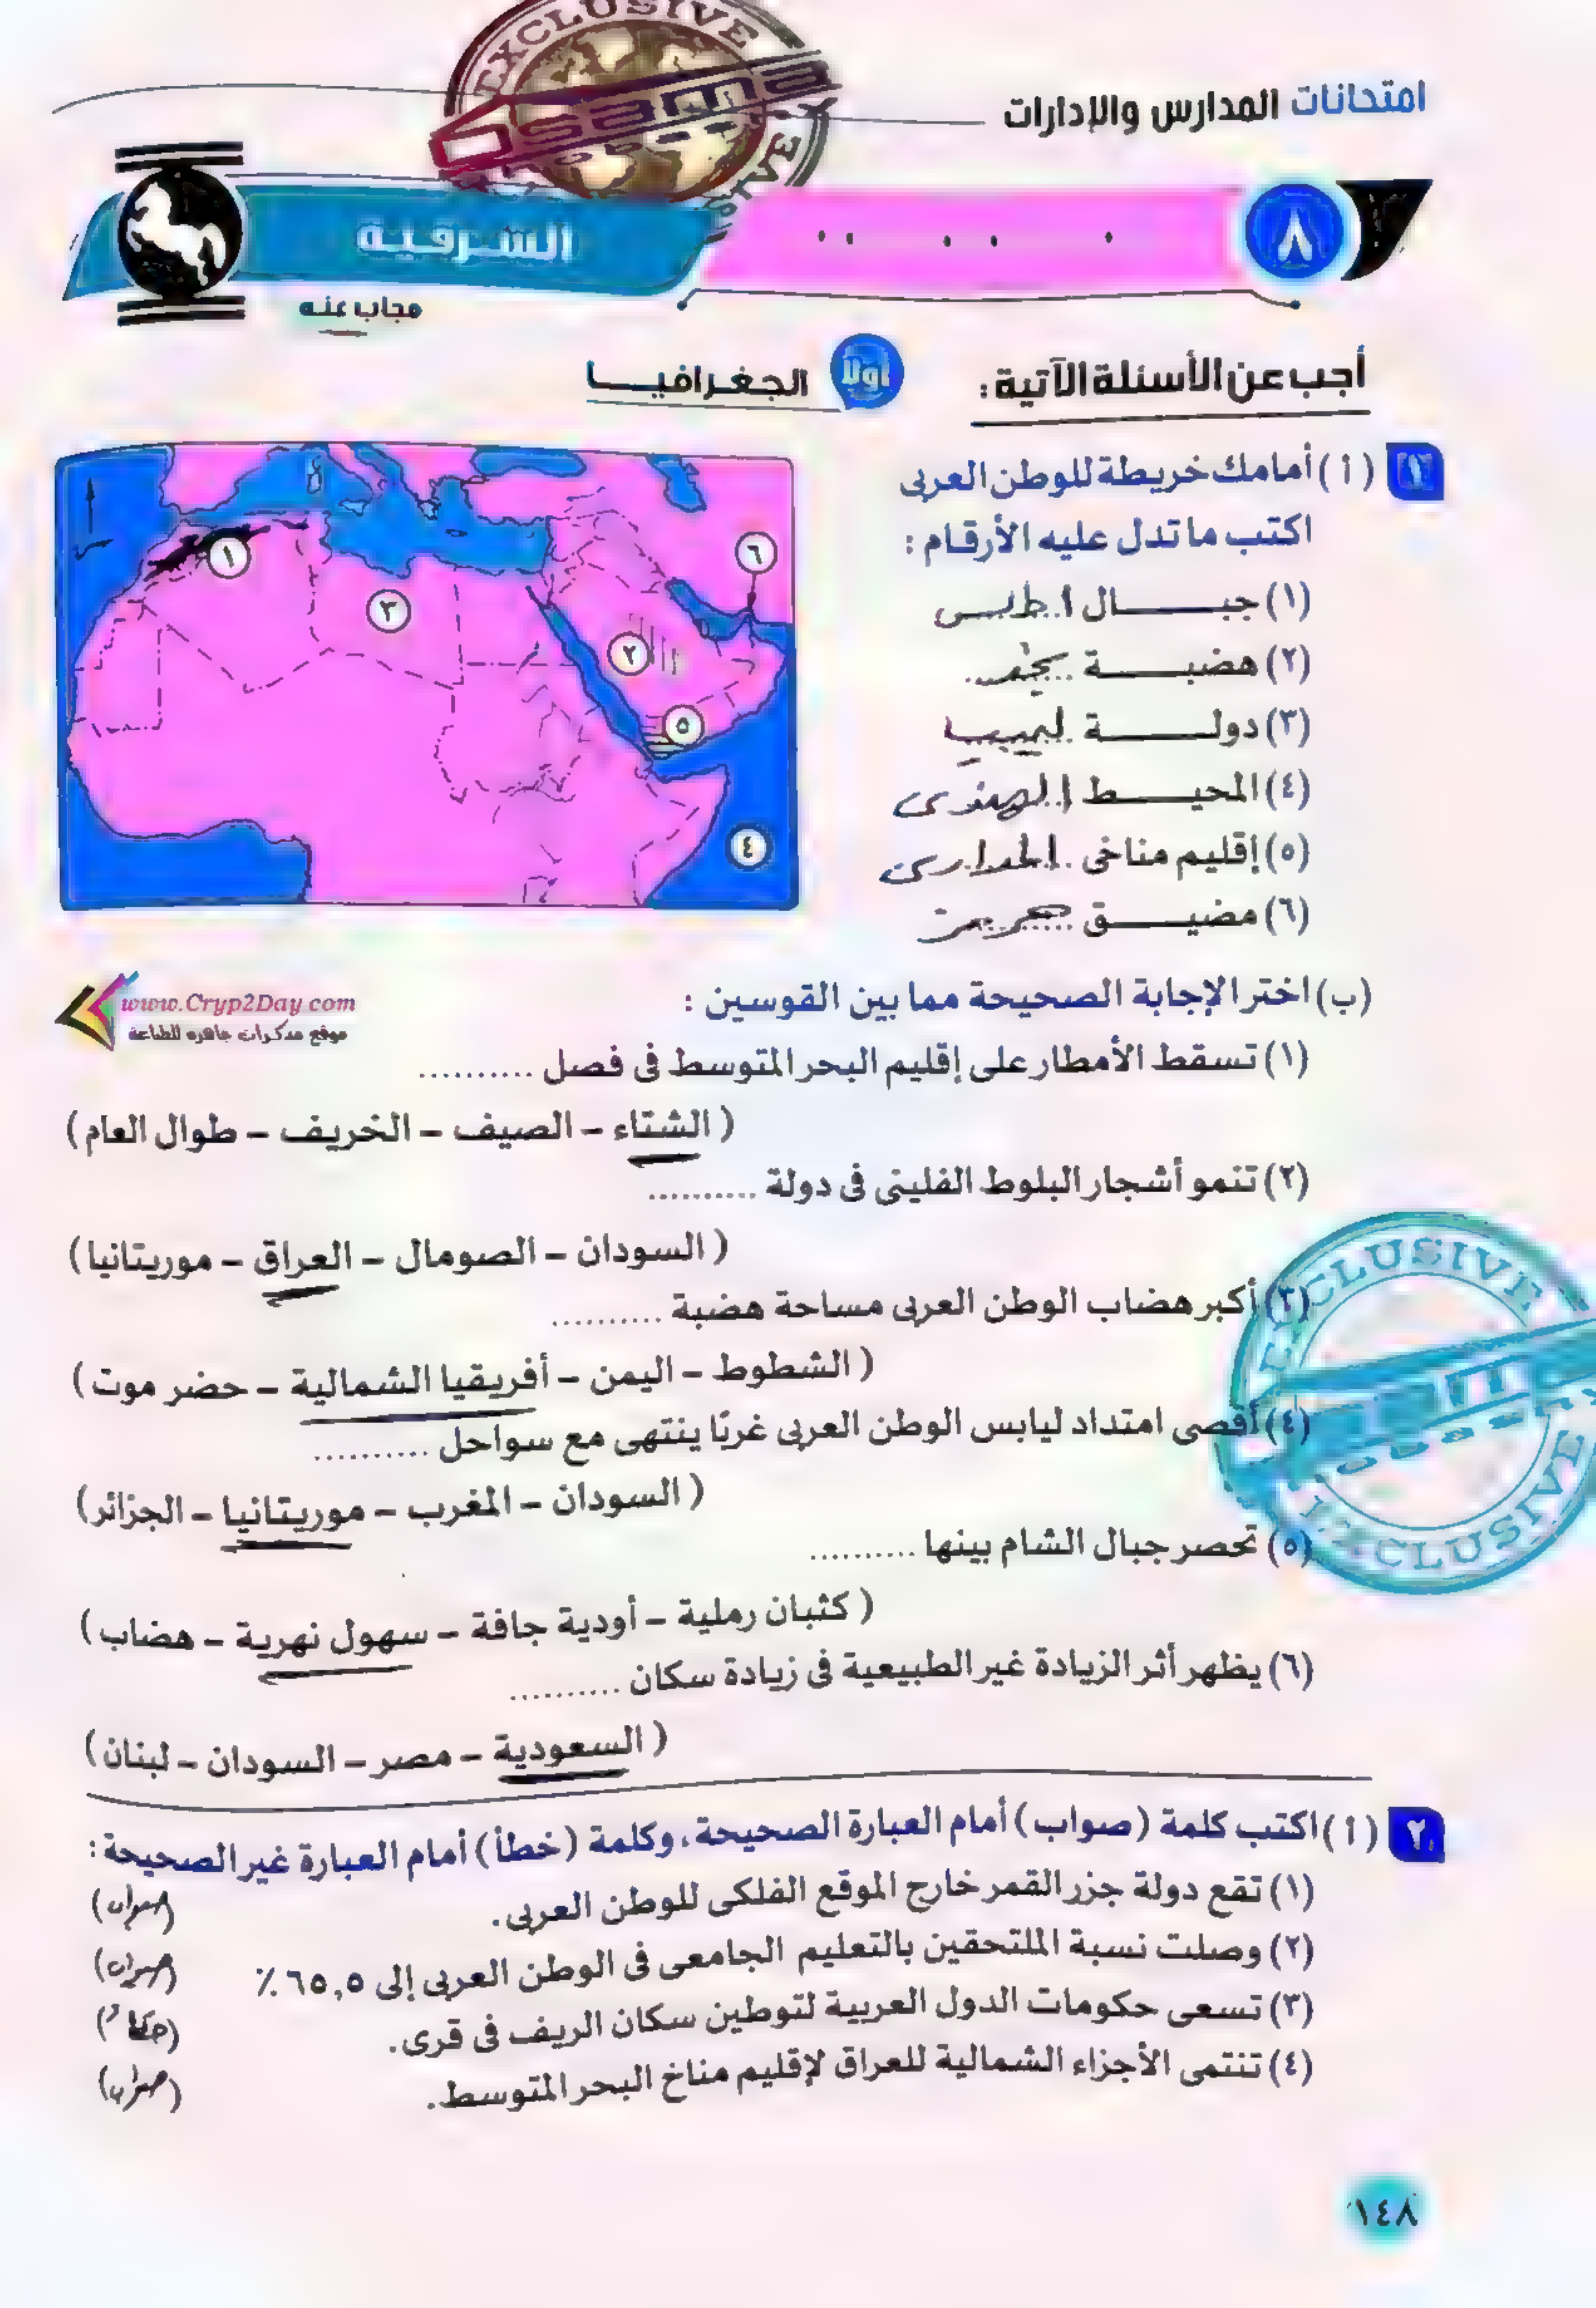 امتحانات المدارس والإدارات
EXCLUSIVE
٨
الشرقية
مجاب عنه
أجب عن الأسئلة الآتية :
أولاً الجغرافيا
١ (أ) أمامك خريطة للوطن العربى
اكتب ما تدل عليه الأرقام :
(١) جبال أطلس
(٢) هضبة نجد
(٣) دولة ليبيا
(٤) المحيط الهندى
(٥) إقليم مناخى المدارى
(٦) مضيق هرمز
١
٢
٣
٤
٥
٦
www.Cryp2Day.com
موقع مذكرات جاهزة للطباعة
(ب) اختر الإجابة الصحيحة مما بين القوسين :
(١) تسقط الأمطار على إقليم البحر المتوسط فى فصل ..........
(الشتاء – الصيف – الخريف – طوال العام)
(٢) تنمو أشجار البلوط الفلينى فى دولة ..........
(السودان – الصومال – العراق – موريتانيا)
(٣) أكبر هضاب الوطن العربى مساحة هضبة ..........
(الشطوط – اليمن – أفريقيا الشمالية – حضر موت)
(٤) أقصى امتداد ليابس الوطن العربى غربًا ينتهى مع سواحل ..........
(السودان – المغرب – موريتانيا – الجزائر)
(٥) تحصر جبال الشام بينها ..........
(كثبان رملية – أودية جافة – سهول نهرية – هضاب)
(٦) يظهر أثر الزيادة غير الطبيعية فى زيادة سكان ..........
(السعودية – مصر – السودان – لبنان)
EXCLUSIVE
EXCLUSIVE
٢ (أ) اكتب كلمة (صواب) أمام العبارة الصحيحة، وكلمة (خطأ) أمام العبارة غير الصحيحة :
(١) تقع دولة جزر القمر خارج الموقع الفلكى للوطن العربى. (صواب)
(٢) وصلت نسبة الملتحقين بالتعليم الجامعى فى الوطن العربى إلى ٦٥,٥ ٪ (صواب)
(٣) تسعى حكومات الدول العربية لتوطين سكان الريف فى قرى. (خطأ)
(٤) تنتمى الأجزاء الشمالية للعراق لإقليم مناخ البحر المتوسط. (صواب)
١٤٨